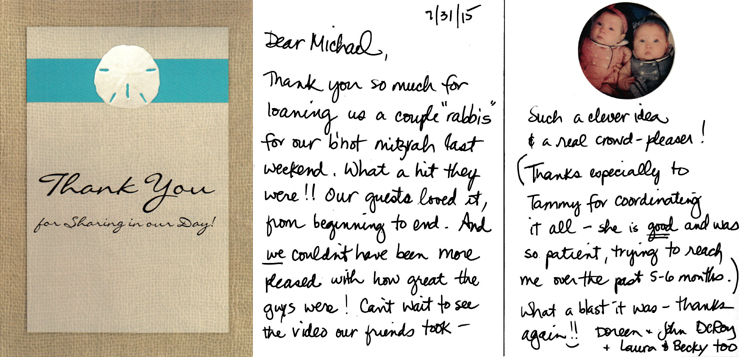 Thank You
for Sharing in our Day!
7/31/15
Dear Michael,
Thank you so much for
loaning us a couple "rabbis"
for our b'not mitzvah last
weekend. What a hit they
were!! Our guests loved it,
from beginning to end. And
we couldn't have been more
pleased with how great the
guys were! Can't wait to see
the video our friends took –
Such a clever idea
& a real crowd-pleaser!
(Thanks especially to
Tammy for coordinating
it all – she is good and was
so patient, trying to reach
me over the past 5-6 months.)
What a blast it was – thanks
again!! Doreen + John DeRoy
+ Laura & Becky too